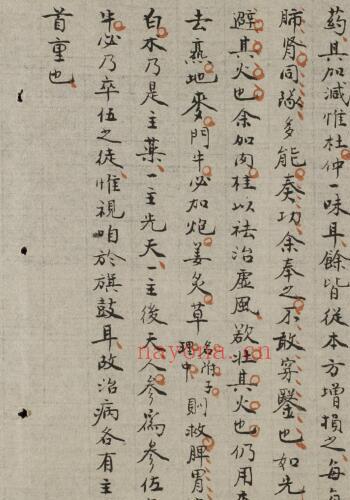 药其加減惟杜仲一味耳餘皆從本方增損之每每
肺肾同隊多能奏功余奉之不敢穿鑿也如先
避其火也余加肉桂以祛治虚風欲壮其火也仍用
去熟地麥門牛必加炮姜炙草名附子理中則救脾胃
白术乃是主藥一主先天一主後天人參爲參伍
牛必乃卒伍之徒惟視咱於旗鼓耳故治病各有主
首重也
nayona.cn